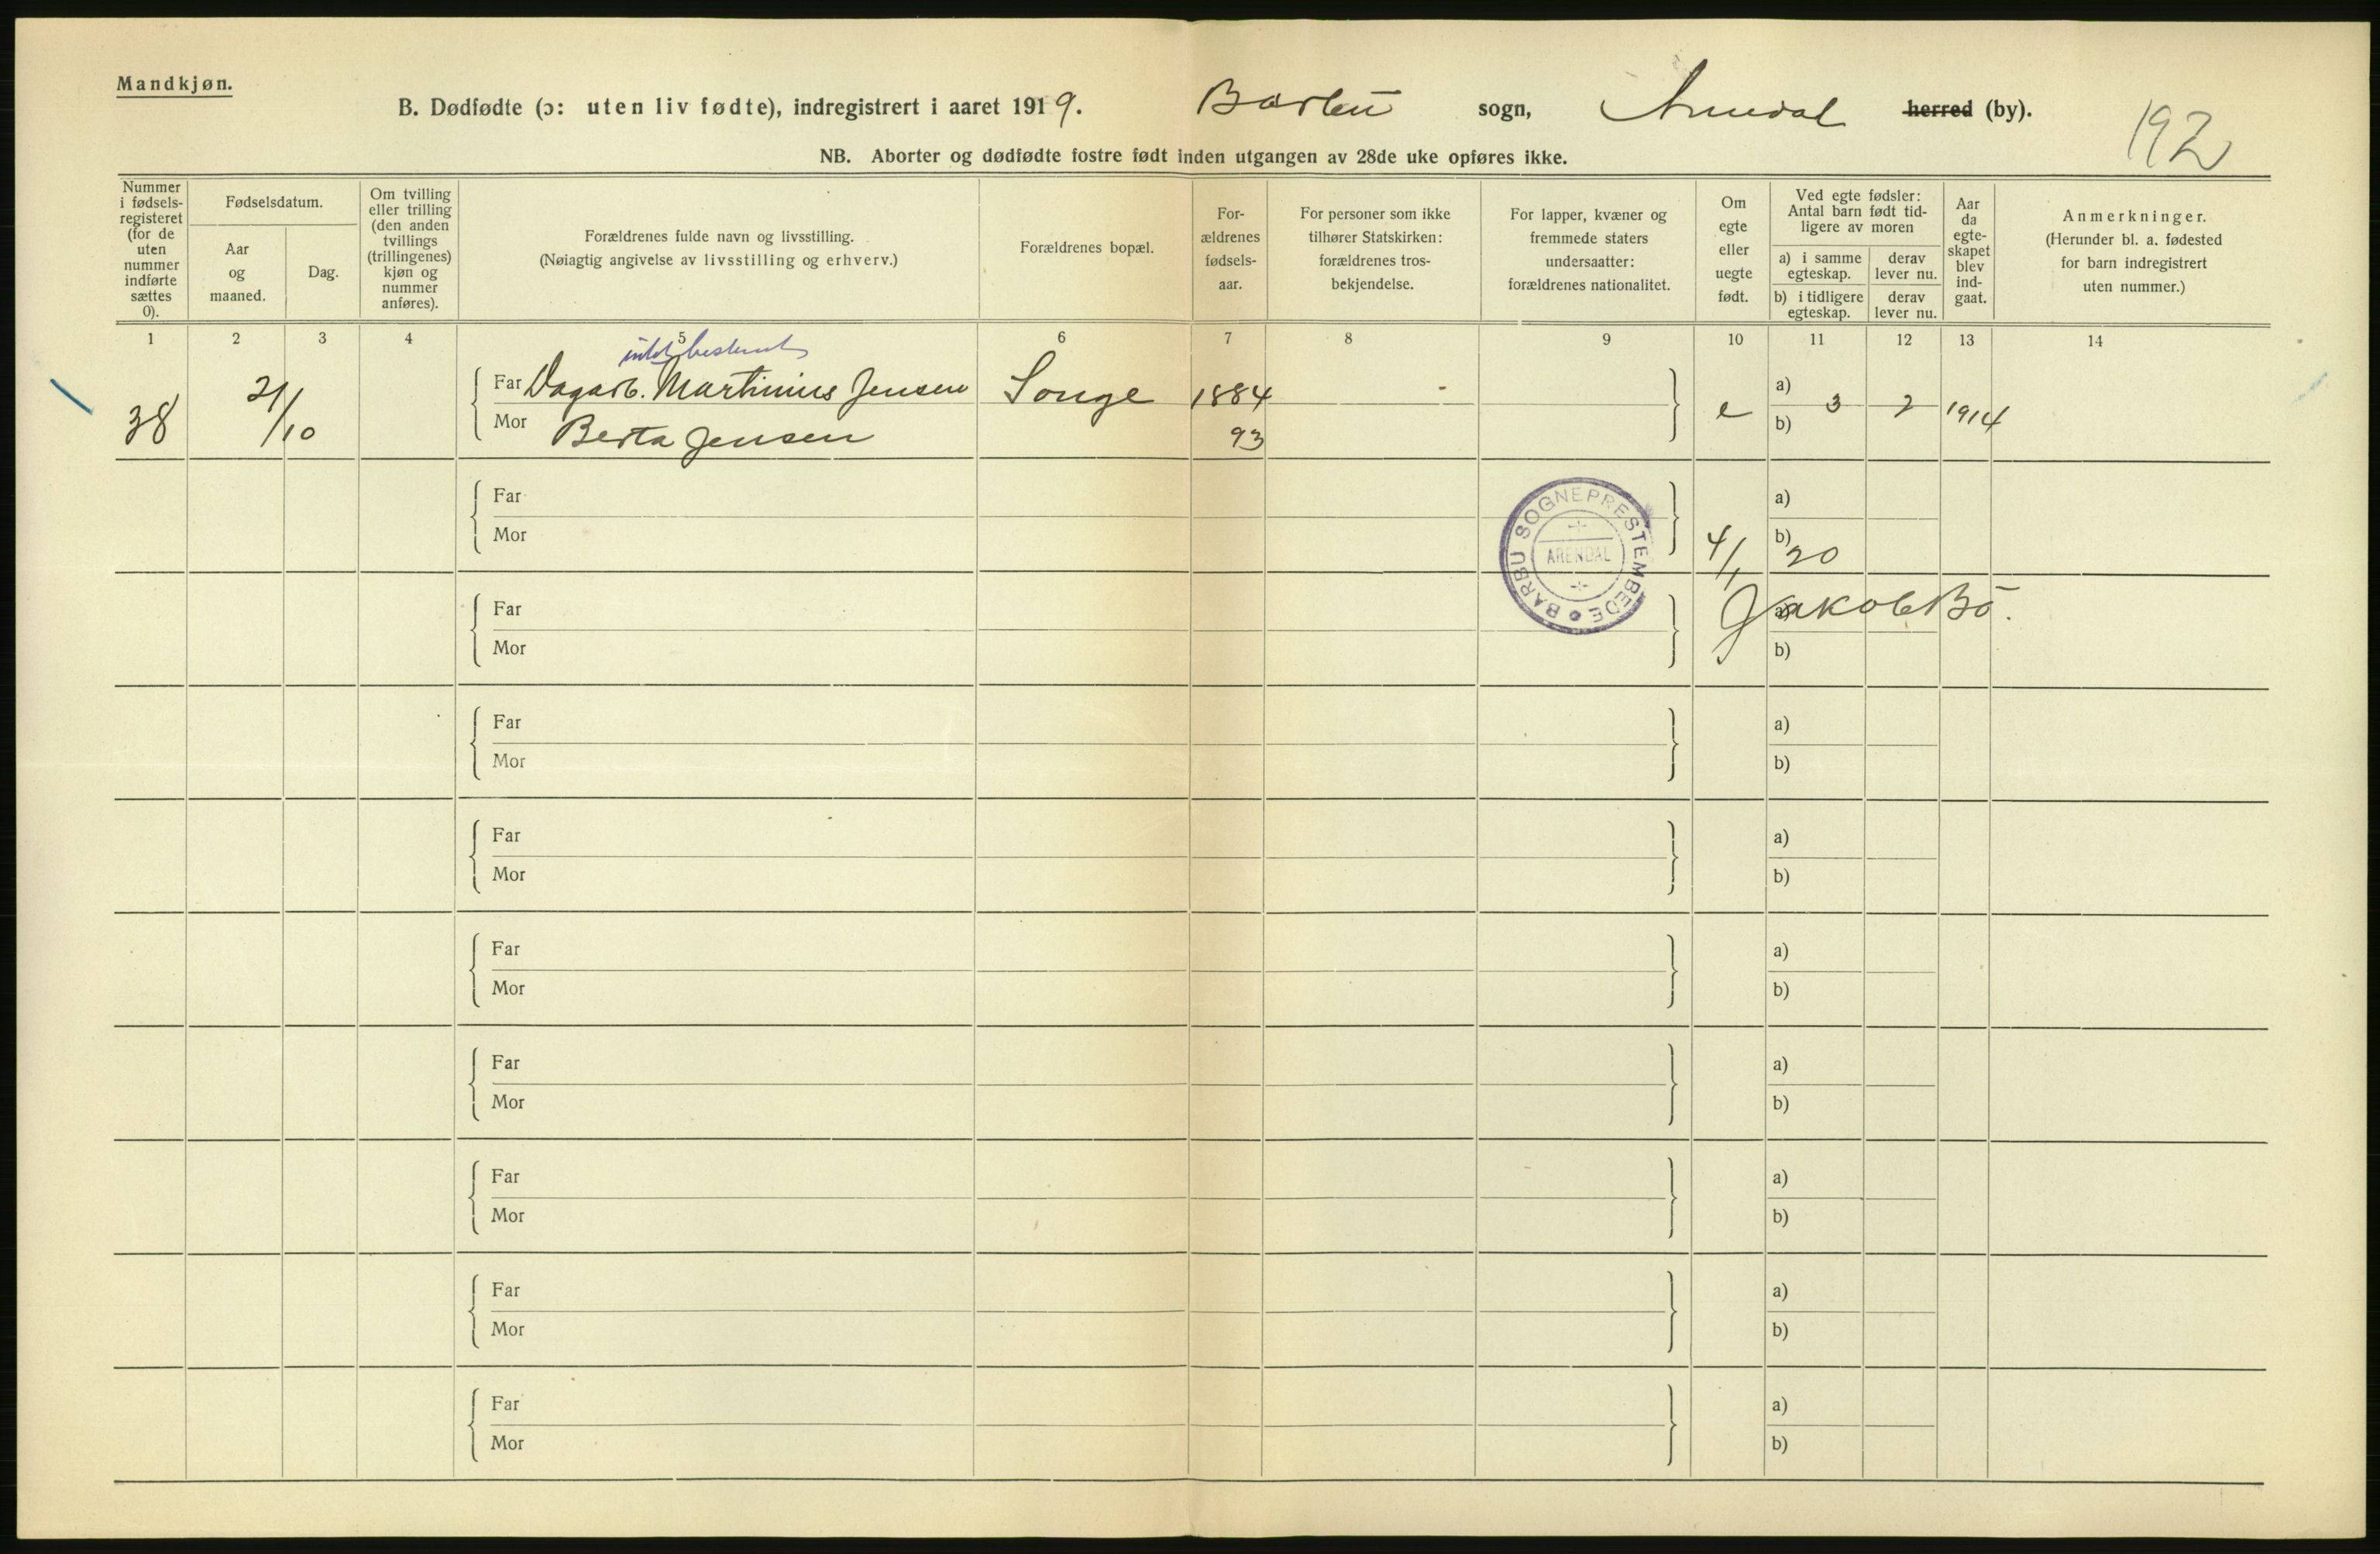 Mandkjøn.
B. Dødfødte (ɔ: uten liv fødte), indregistrert i aaret 1919. Barbu sogn, Arendal herred (by).
192
NB. Aborter og dødfødte fostre født inden utgangen av 28de uke opføres ikke.
Nummer i fødselsregisteret (for de uten nummer indførte sættes 0).
Fødselsdatum.
Aar og maaned.
Dag.
Om tvilling eller trilling (den anden tvillings (trillingenes) kjøn og nummer anføres).
Forældrenes fulde navn og livsstilling.
(Nøiagtig angivelse av livsstilling og erhverv.)
Forældrenes bopæl.
Forældrenes fødselsaar.
For personer som ikke tilhører Statskirken: forældrenes trosbekjendelse.
For lapper, kvæner og fremmede staters undersaatter: forældrenes nationalitet.
Om egte eller uegte født.
Ved egte fødsler: Antal barn født tidligere av moren
a) i samme egteskap.
derav lever nu.
b) i tidligere egteskap.
derav lever nu.
Aar da egteskapet blev indgaat.
Anmerkninger.
(Herunder bl. a. fødested for barn indregistrert uten nummer.)
1 2 3 4 5 6 7 8 9 10 11 12 13 14
intet bestemt
38 21/10 Far Dagarb. Martinius Jensen Songe 1884 e a) 3 2 1914
Mor Berta Jensen 93 b)
Far a)
Mor b)
BARBU SOGNEPRESTEMBEDE
ARENDAL
4/1 20
Jakob Bö.
Far a)
Mor b)
Far a)
Mor b)
Far a)
Mor b)
Far a)
Mor b)
Far a)
Mor b)
Far a)
Mor b)
Far a)
Mor b)
Far a)
Mor b)